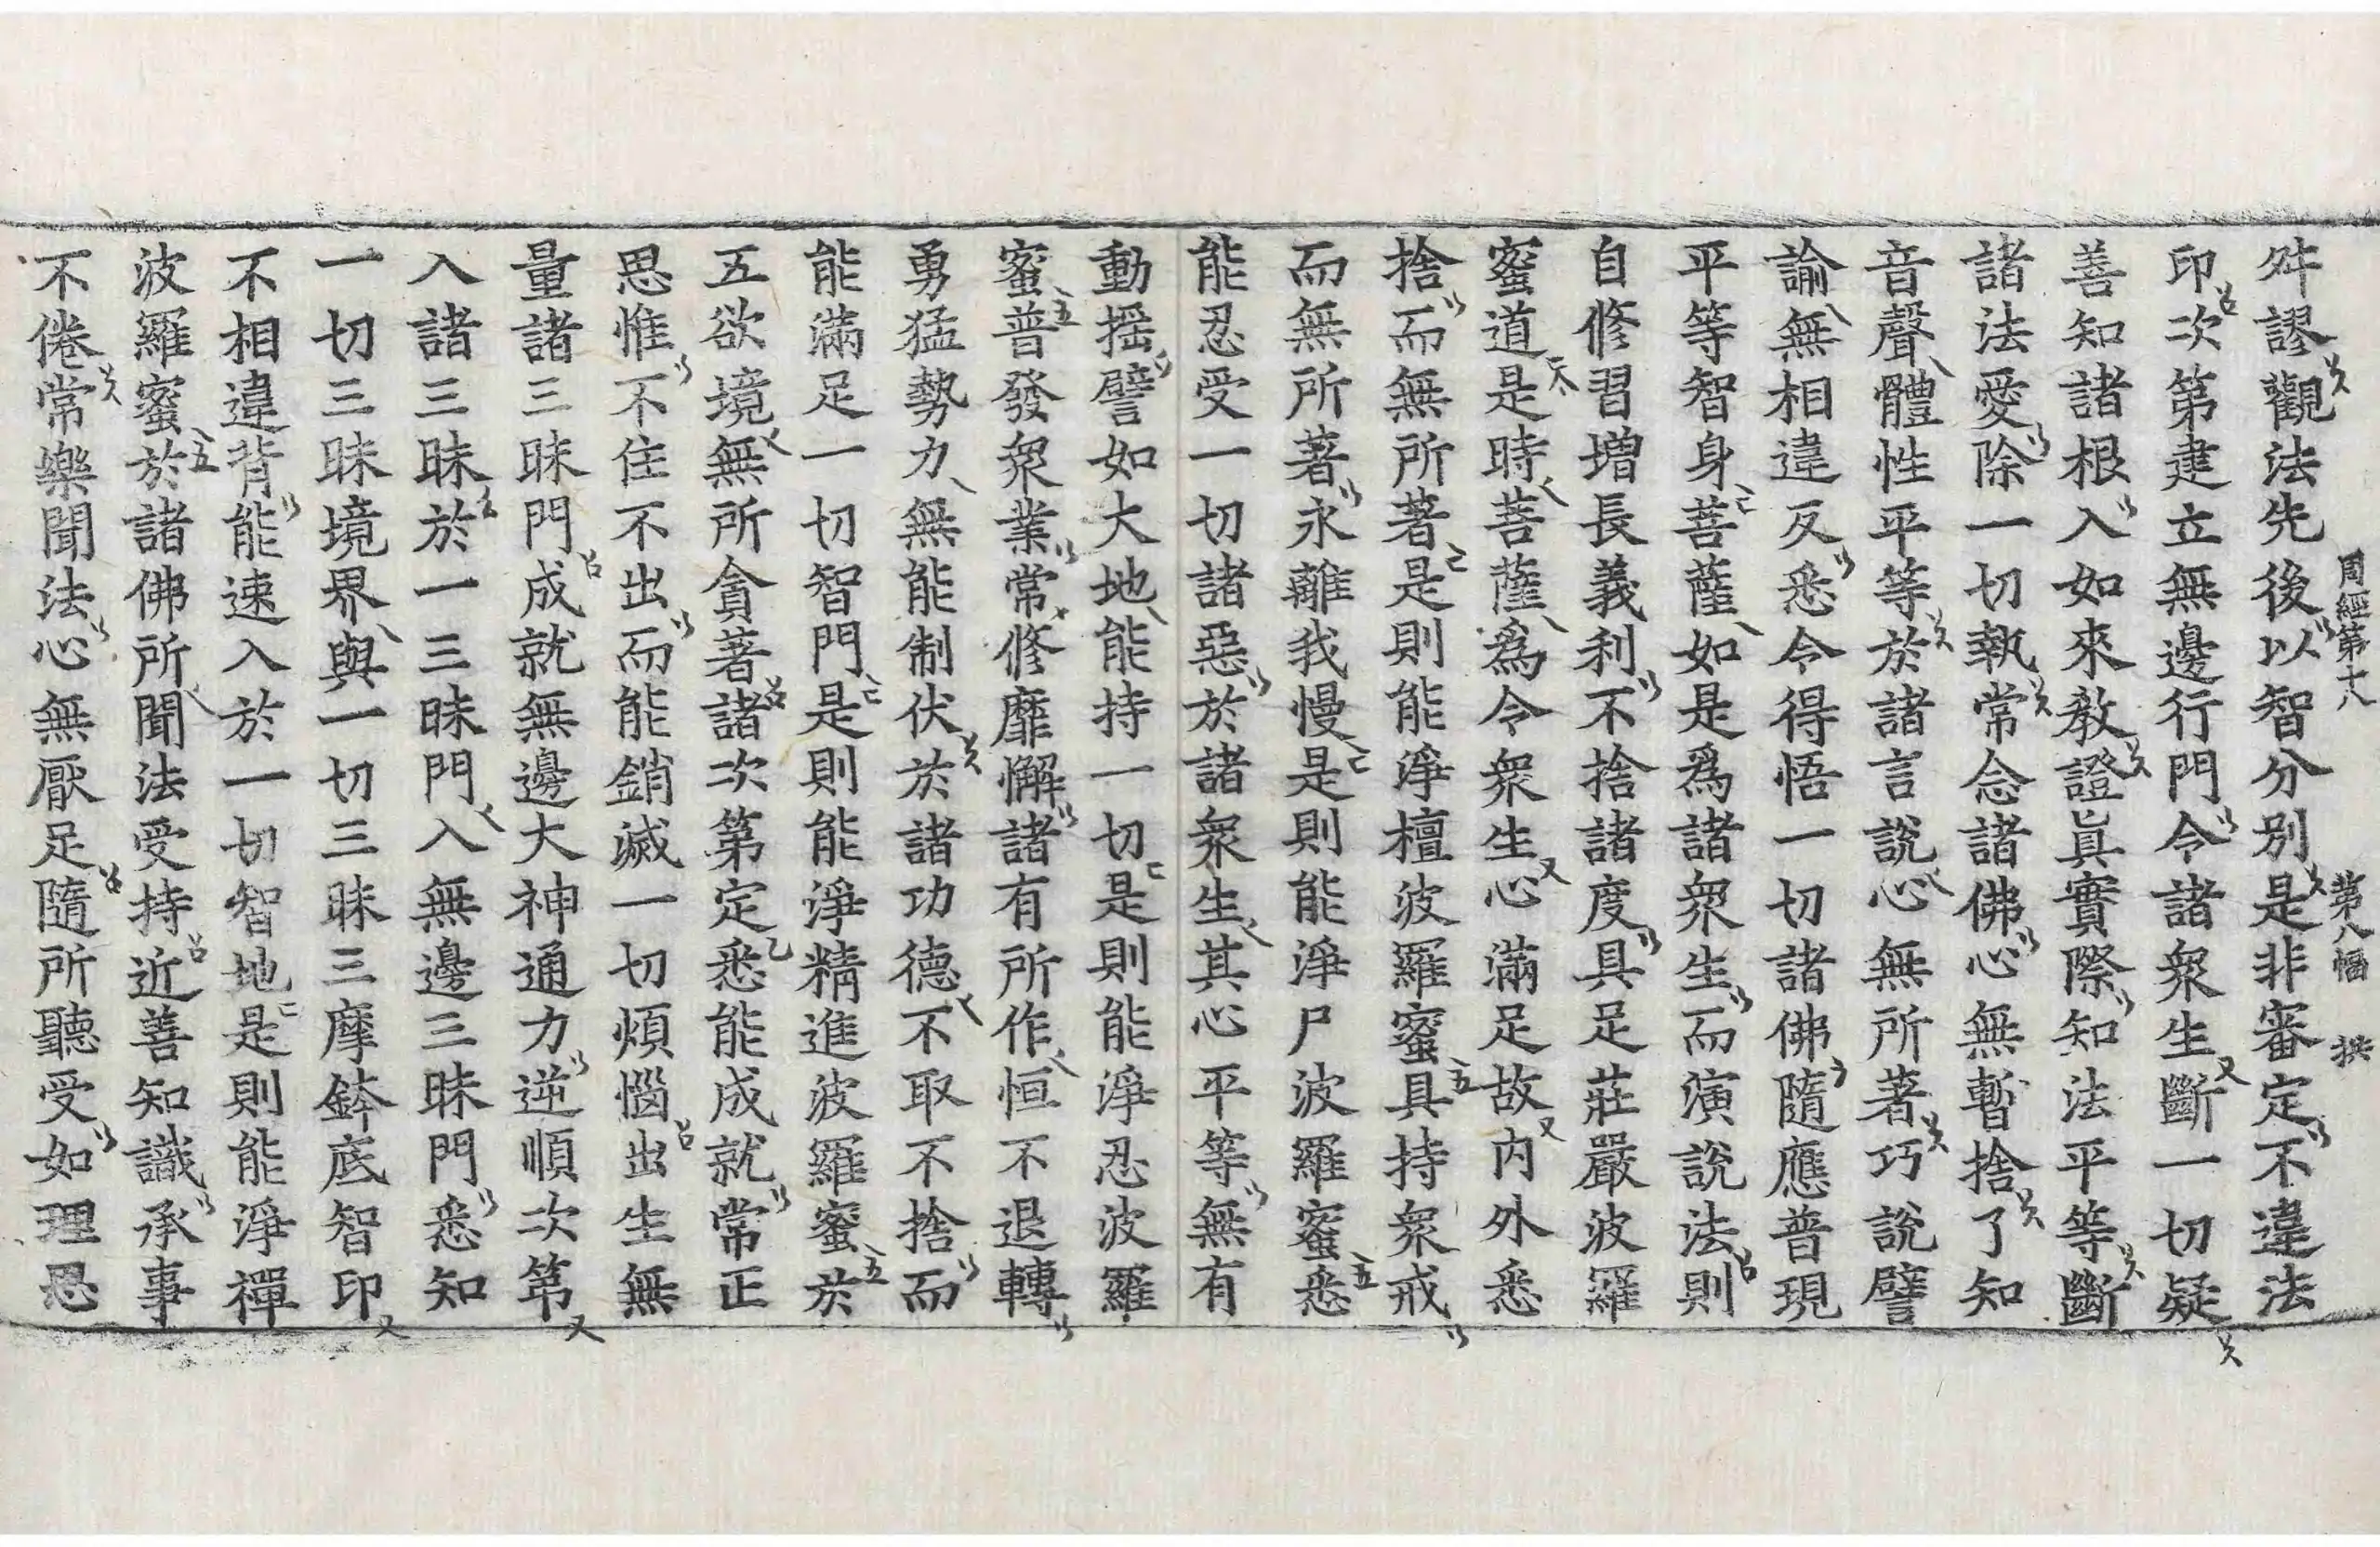 周經第十八 第八幅 拱
舛謬觀法先後以智分別是非審定不違法
印次第建立無邊行門令諸衆生斷一切疑
善知諸根入如來教證眞實際知法平等斷
諸法愛除一切執常念諸佛心無暫捨了知
音聲體性平等於諸言說心無所著巧說譬
諭無相違反悉令得悟一切諸佛隨應普現
平等智身菩薩如是爲諸衆生而演說法則
自修習增長義利不捨諸度具足莊嚴波羅
蜜道是時菩薩爲令衆生心滿足故内外悉
捨而無所著是則能淨檀波羅蜜具持衆戒
而無所著永離我慢是則能淨尸波羅蜜悉
能忍受一切諸惡於諸衆生其心平等無有
動搖譬如大地能持一切是則能淨忍波羅
蜜普發衆業常修靡懈諸有所作恒不退轉
勇猛勢力無能制伏於諸功德不取不捨而
能滿足一切智門是則能淨精進波羅蜜於
五欲境無所貪著諸次第定悉能成就常正
思惟不住不出而能銷滅一切煩惱出生無
量諸三昧門成就無邊大神通力逆順次第
入諸三昧於一三昧門入無邊三昧門悉知
一切三昧境界與一切三昧三摩鉢底智印
不相違背能速入於一切智地是則能淨禪
波羅蜜於諸佛所聞法受持近善知識承事
不倦常樂聞法心無厭足隨所聽受如理思